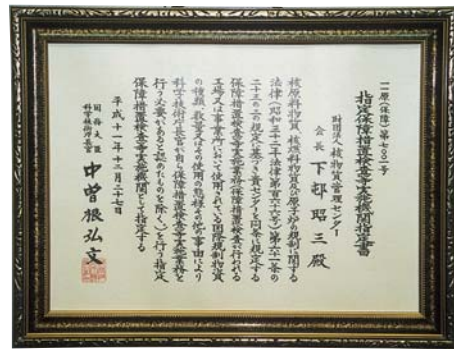 一一原(保障)第七〇〇一号
指定保障措置検査等実施機関指定書
財団法人核物質管理センター
会長 下邨昭三殿
核原料物質、核燃料物質及び原子炉の規制に関する
法律(昭和三十二年法律第百六十六号)第六十一条の
二十三の二の規定に基づき貴センターを同条に規定する
保障措置検査等実施業務(保障措置検査が行われる
工場又は事業所において使用されている国際規制物資
の種類、数量又はその使用の態様その他の事由により
科学技術庁長官が自ら保障措置検査等実施業務を
行う必要があると認めたものを除く。)を行う指定
保障措置検査等実施機関として指定する
平成十一年十二月二十七日
国務大臣
科学技術庁長官 中曽根弘文